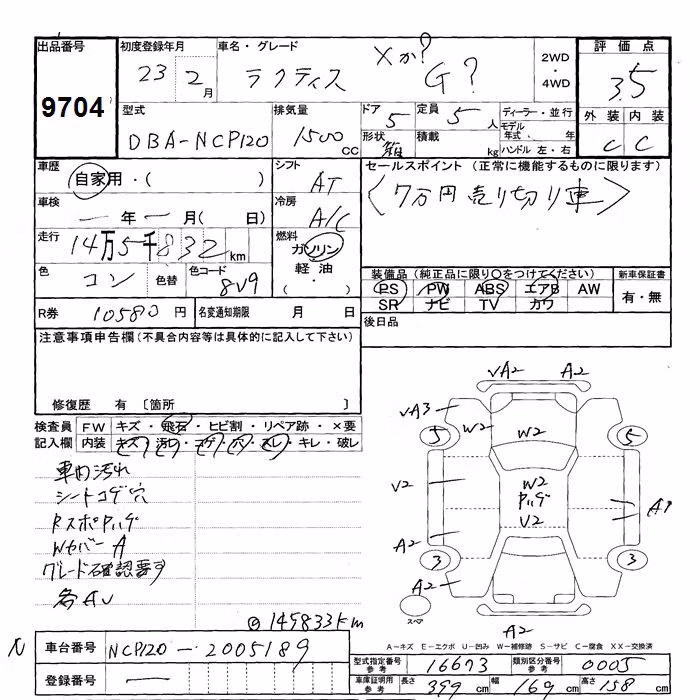 出品番号
9704
初度登録年月
23 2月
車名・グレード
ラクティス
Xか?
G?
2WD
・
4WD
評価点
3.5
型式
DBA-NCP120
排気量
1500 cc
ドア
5
形状
定員
5 人
積載 kg
ディーラー・並行
モデル年式 ・ 年
ハンドル 左・右
外装 内装
C C
車歴
自家用・( )
シフト
AT
車検
一年一月( 日)
冷房
A/C
走行
14万5千832km
燃料
ガソリン
軽油
( ・ )
色
コン
色替
色コード
8V9
セールスポイント (正常に機能するものに限ります)
〈7万円売り切り車〉
装備品 (純正品に限り○をつけてください)
PS PW ABS エアB AW
SR ナビ TV カワ
新車保証書
有・無
R券 10580円
名変通知期限 月 日
後日品
注意事項申告欄(不具合内容等は具体的に記入して下さい)
修復歴 有 〔箇所 〕
検査員記入欄
FW キズ・飛石・ヒビ割・リペア跡・×要
内装 キズ・汚れ・コゲ・穴・スレ・キレ・破レ
車内汚れ
シートコゲ穴
RスポPハゲ
WカバーA
グレード確認要す
各AU
@145833km
VA2 A2
VA3
W2
W2
5 5
V2
W2
Pハゲ
U2
A1
A2
3 3
A2
スペア
A2
A-キズ E-エクボ U-凹み W-補修跡 S-サビ C-腐食 XX-交換済
N
車台番号 NCP120-2005189
登録番号 ―
型式指定番号 参考 16673
類別区分番号 参考 0005
車庫証明用 参考 長さ 399cm 幅 169cm 高さ 158cm